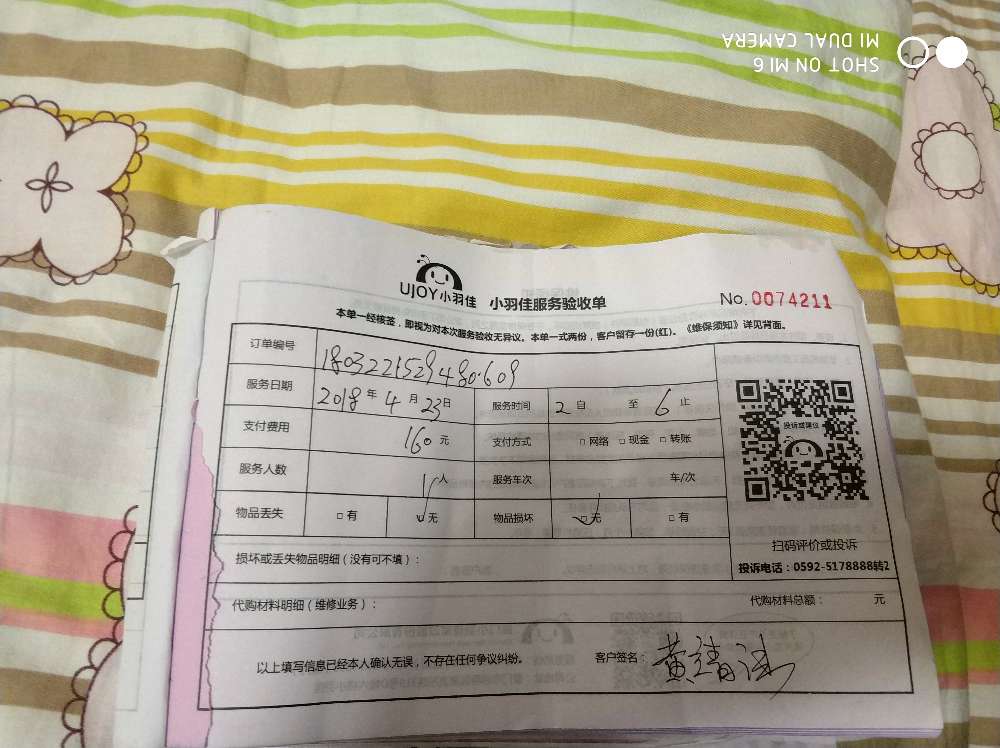 SHOT ON MI 6
MI DUAL CAMERA
UJOY小羽佳 小羽佳服务验收单 No.0074211
本单一经核签，即视为对本次服务验收无异议。本单一式两份，客户留存一份(红)。《维保须知》详见背面。
订单编号 1803221529480609
服务日期 2018年4月23日 服务时间 2自 至 6止
支付费用 160元 支付方式 □网络 □现金 □转账
服务人数 1人 服务车次 车/次
物品丢失 □有 □无 物品损坏 □无 □有
投诉或建议
扫码评价或投诉
投诉电话：0592-5178888转2
损坏或丢失物品明细（没有可不填）：
代购材料明细（维修业务）： 代购材料总额： 元
以上填写信息已经本人确认无误，不存在任何争议纠纷。 客户签名：黄清